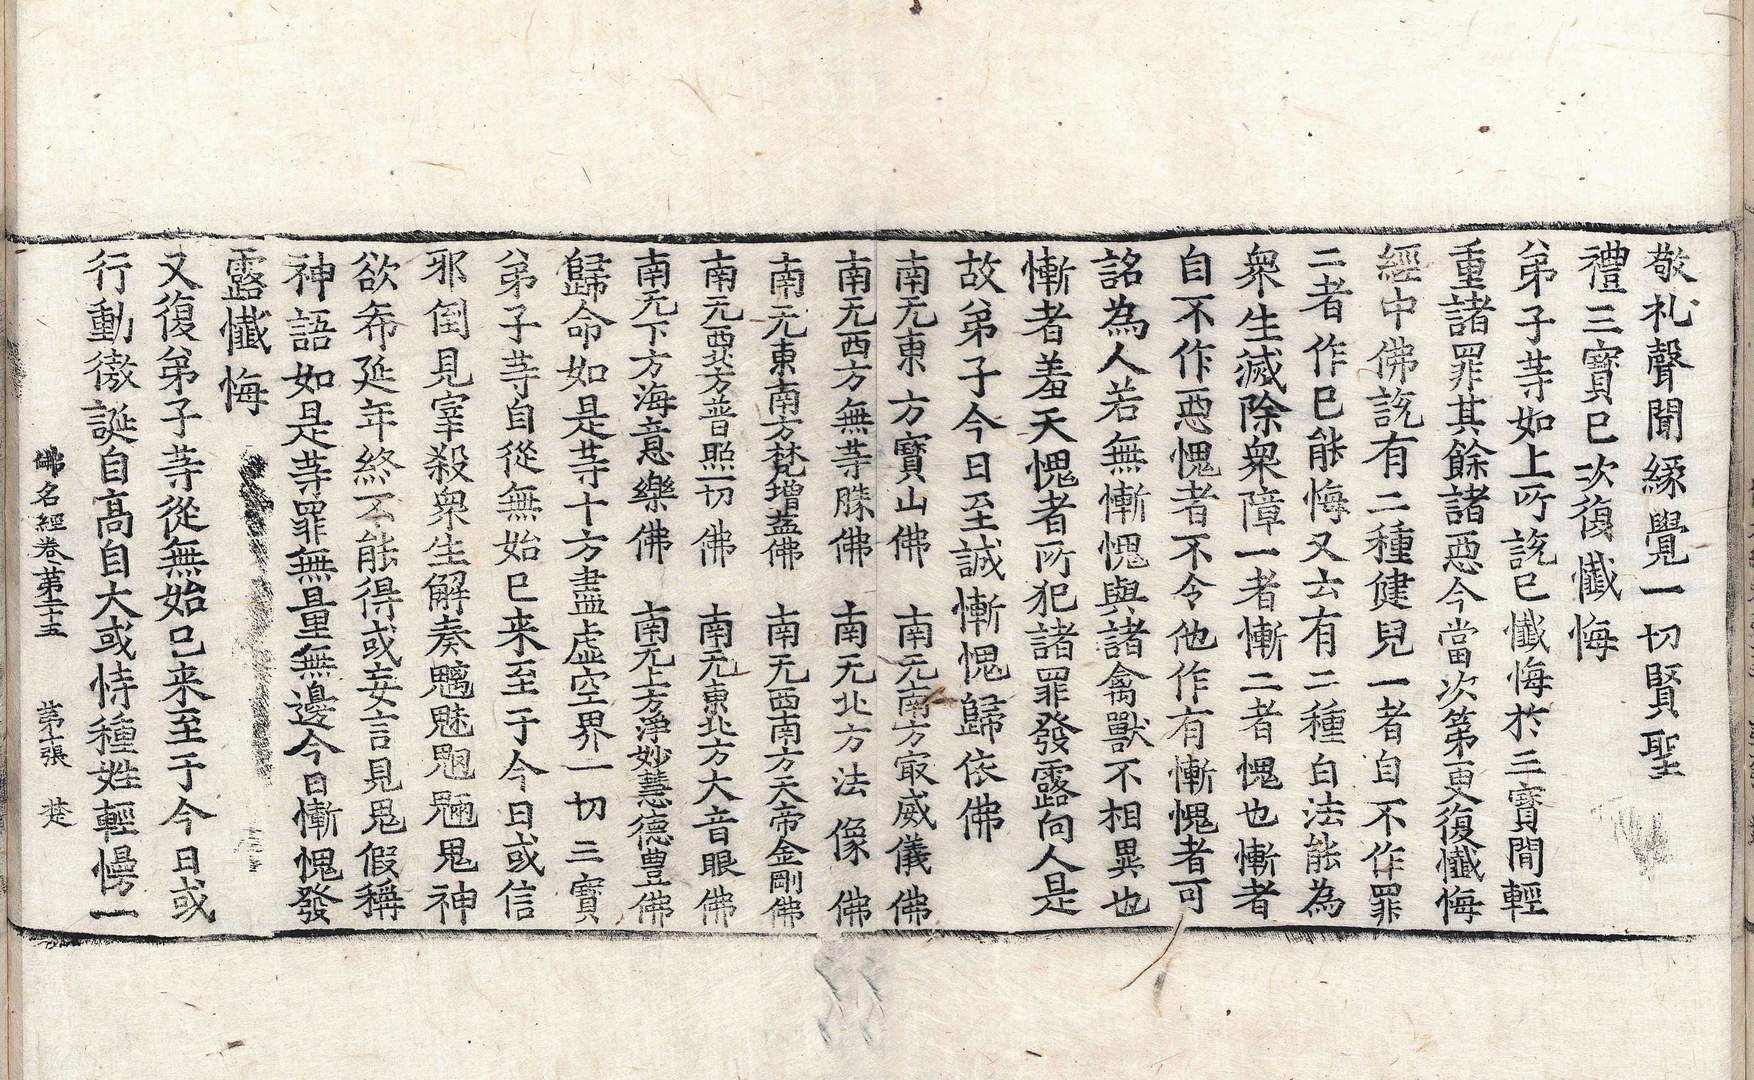 敬礼聲聞緣覺一切賢聖
禮三寶已次復懺悔
弟子䓁如上所說已懺悔於三寶間輕
重諸罪其餘諸惡今當次第更復懺悔
經中佛說有二種健兒一者自不作罪
二者作已能悔又云有二種白法能為
衆生滅除衆障一者慚二者愧也慚者
自不作惡愧者不令他作有慚愧者可
詺為人若無慚愧與諸禽獸不相異也
慚者羞天愧者所犯諸罪發露向人是
故弟子今日至誠慚愧歸依佛
南无東方寶山佛 南无南方㝡威儀佛
南无西方無䓁勝佛 南无北方法像佛
南无東南方梵增益佛 南无西南方天帝金剛佛
南无西北方普照一切佛 南无東北方大音眼佛
南无下方海意樂佛 南无上方淨妙慧德豊佛
歸命如是䓁十方盡虛空界一切三寶
弟子䓁自從無始已来至于今日或信
邪倒見宰殺衆生解奏魑魅魍魎鬼神
欲希延年終不能得或妄言見鬼假稱
神語如是䓁罪無量無邊今日慚愧發
露懺悔
又復弟子䓁從無始已来至于今日或
行動傲誕自高自大或恃種姓輕慢一
佛名經卷第二十五 第十張 楚